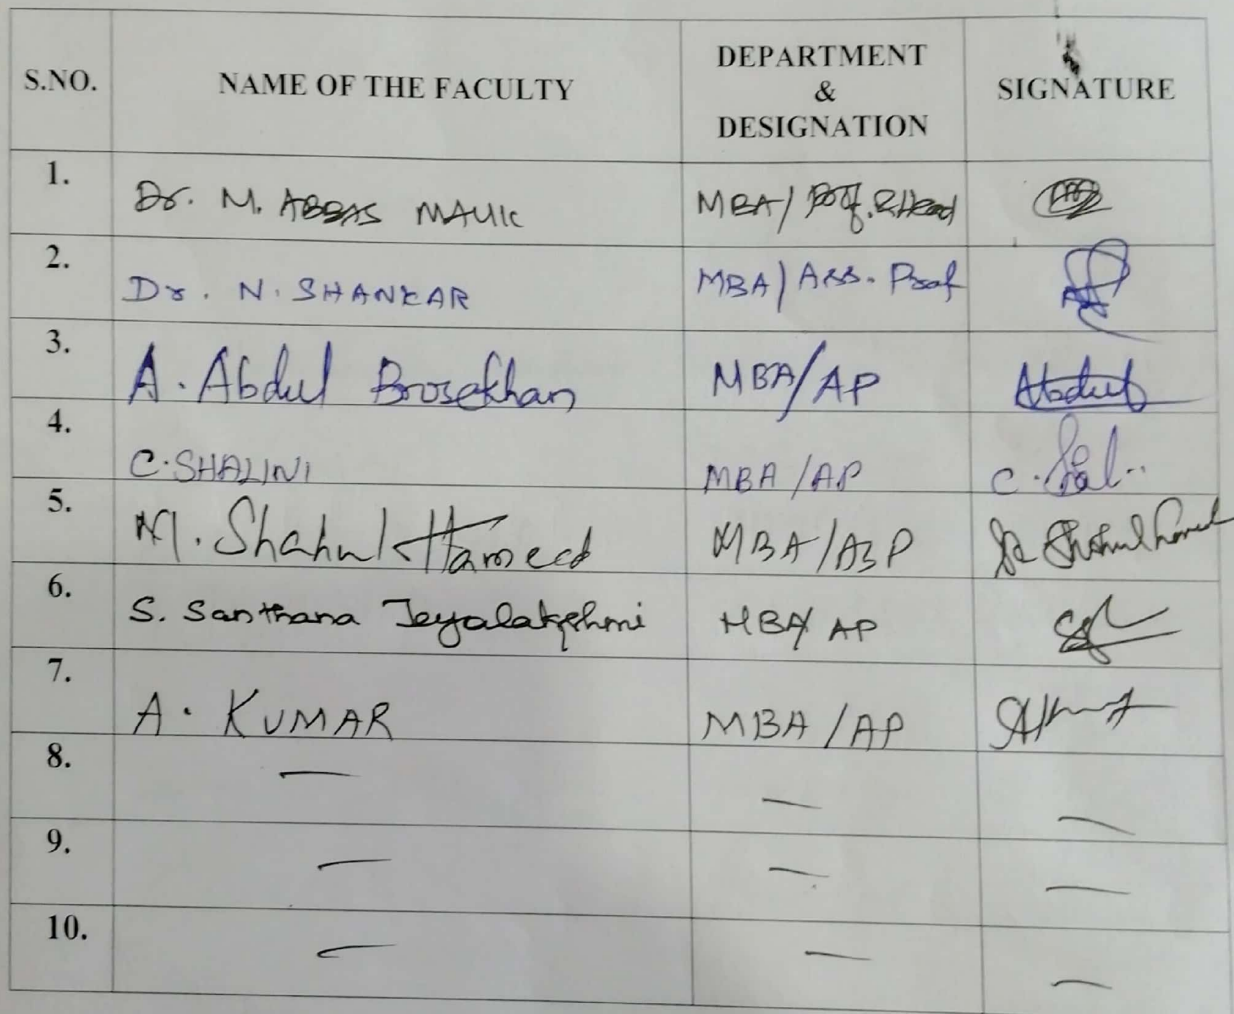 S.NO. NAME OF THE FACULTY DEPARTMENT & DESIGNATION SIGNATURE
1. Dr. M. ABBAS MALIK MBA/ Prof. & Head
2. Dr. N. SHANKAR MBA/ Ass. Prof
3. A. Abdul Brosekhan MBA/AP Abdul
4. C. SHALINI MBA/AP C. Shal..
5. M. Shahul Hameed MBA/ShahulHameed
6. S. Santhana Jeyalakshmi MBA/ AP
7. A. KUMAR MBA/AP
8. — — —
9. — — —
10. — — —